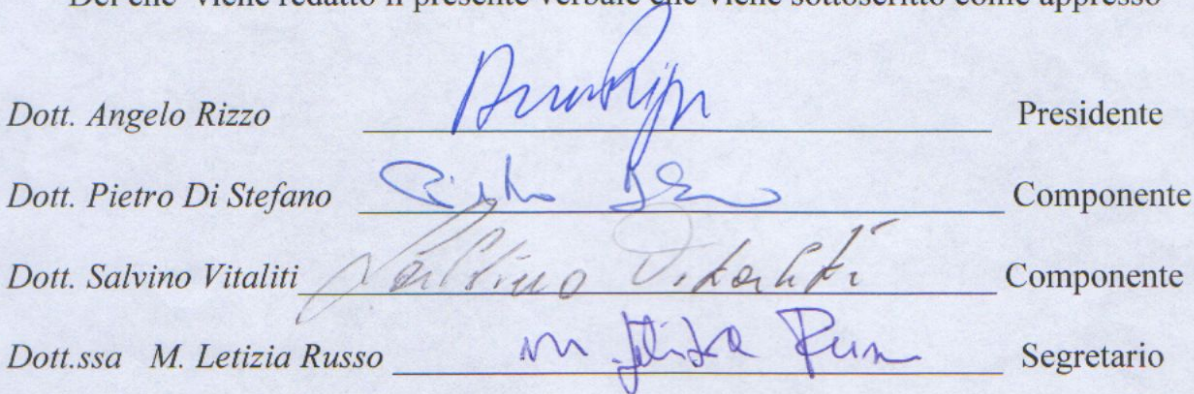 Del che viene redatto il presente verbale che viene sottoscritto come appresso
Dott. Angelo Rizzo Presidente
Dott. Pietro Di Stefano Componente
Dott. Salvino Vitaliti Salvino Vitaliti Componente
Dott.ssa M. Letizia Russo M. Letizia Russo Segretario